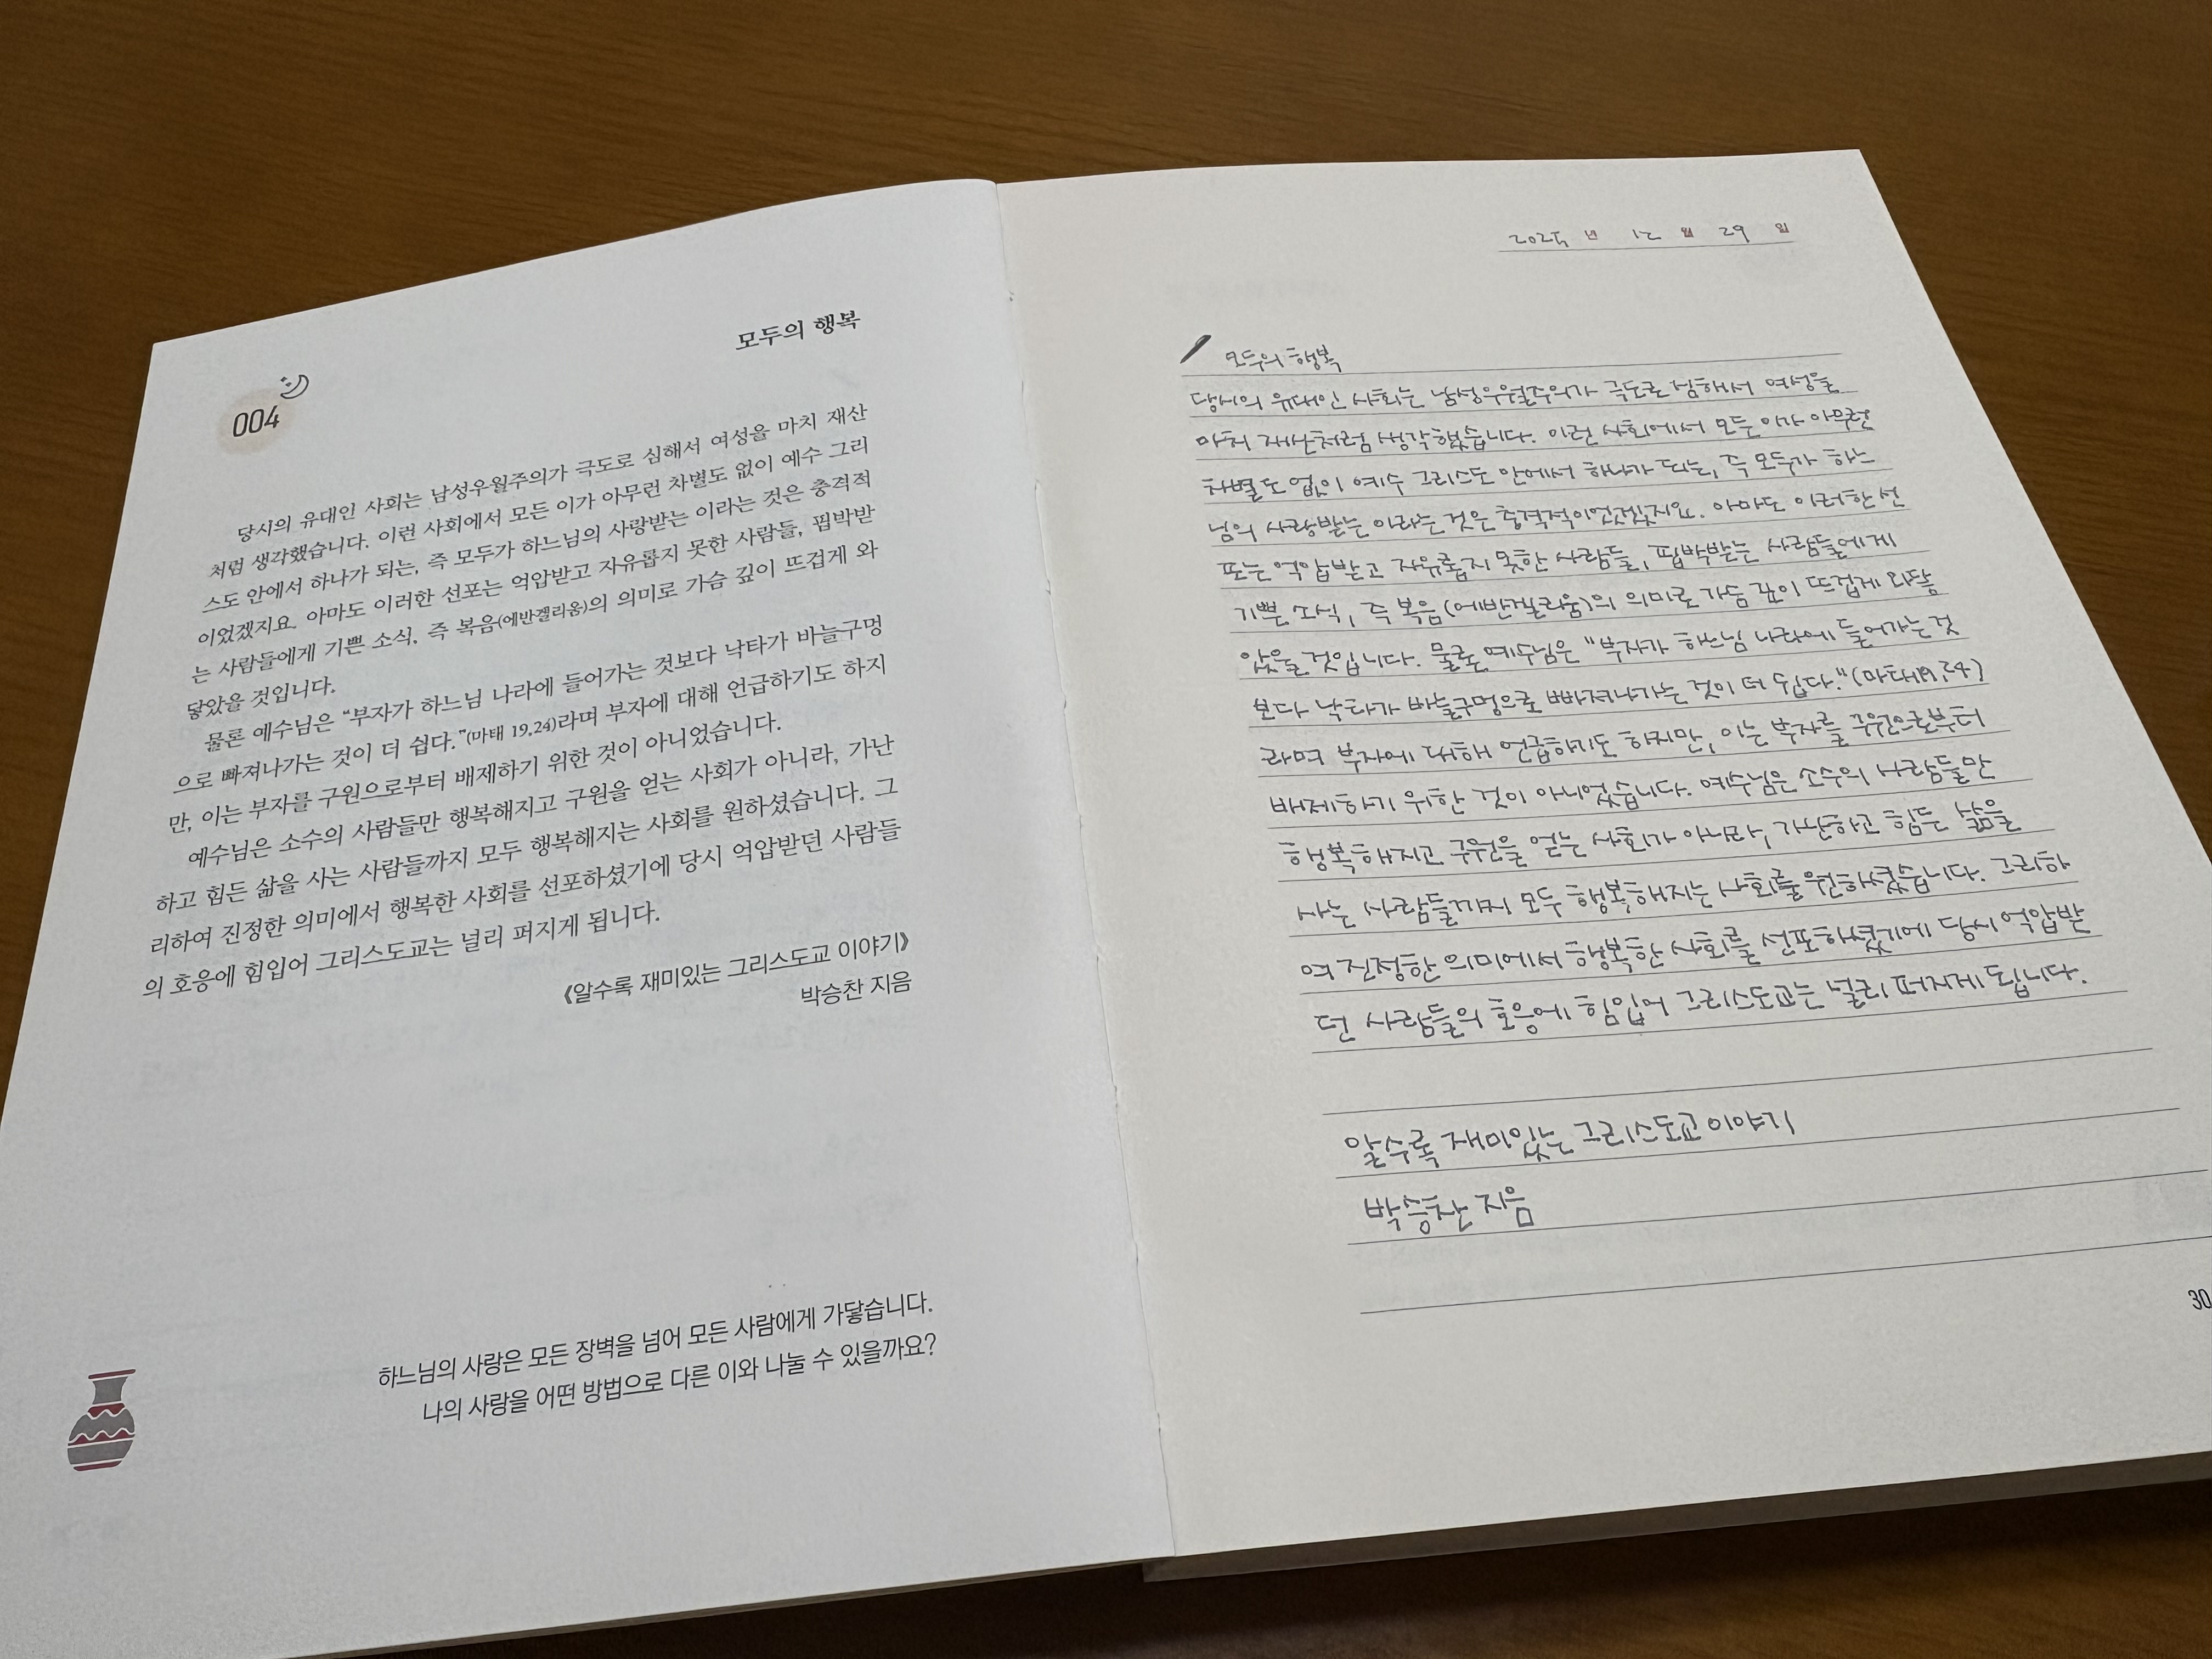 모두의 행복
004
당시의 유대인 사회는 남성우월주의가 극도로 심해서 여성을 마치 재산
처럼 생각했습니다. 이런 사회에서 모든 이가 아무런 차별도 없이 예수 그리
스도 안에서 하나가 되는, 즉 모두가 하느님의 사랑받는 이라는 것은 충격적
이었겠지요. 아마도 이러한 선포는 억압받고 자유롭지 못한 사람들, 핍박받
는 사람들에게 기쁜 소식, 즉 복음(에반겔리움)의 의미로 가슴 깊이 뜨겁게 와
닿았을 것입니다.
물론 예수님은 “부자가 하느님 나라에 들어가는 것보다 낙타가 바늘구멍
으로 빠져나가는 것이 더 쉽다.”(마태 19,24)라며 부자에 대해 언급하기도 하지
만, 이는 부자를 구원으로부터 배제하기 위한 것이 아니었습니다.
예수님은 소수의 사람들만 행복해지고 구원을 얻는 사회가 아니라, 가난
하고 힘든 삶을 사는 사람들까지 모두 행복해지는 사회를 원하셨습니다. 그
리하여 진정한 의미에서 행복한 사회를 선포하셨기에 당시 억압받던 사람들
의 호응에 힘입어 그리스도교는 널리 퍼지게 됩니다.
《알수록 재미있는 그리스도교 이야기》
박승찬 지음
하느님의 사랑은 모든 장벽을 넘어 모든 사람에게 가닿습니다.
나의 사랑을 어떤 방법으로 다른 이와 나눌 수 있을까요?
년 12 월 29 일
모두의 행복
당시의 유대인 사회는 남성우월주의가 극도로 심해서 여성을
마치 재산처럼 생각했습니다. 이런 사회에서 모든 이가 아무런
차별도 없이 예수 그리스도 안에서 하나가 되는, 즉 모두가 하느
님의 사랑받는 이라는 것은 충격적이었겠지요. 아마도 이러한 선
포는 억압받고 자유롭지 못한 사람들, 핍박받는 사람들에게
기쁜 소식, 즉 복음(에반겔리움)의 의미로 가슴 깊이 뜨겁게 와닿
았을 것입니다. 물론 예수님은 "부자가 하느님 나라에 들어가는 것
보다 낙타가 바늘구멍으로 빠져나가는 것이 더 쉽다."(마태19,24)
라며 부자에 대해 언급하기도 하지만, 이는 부자를 구원으로부터
배제하기 위한 것이 아니었습니다. 예수님은 소수의 사람들만
행복해지고 구원을 얻는 사회가 아니라, 가난하고 힘든 삶을
사는 사람들까지 모두 행복해지는 사회를 원하셨습니다. 그리하
여 진정한 의미에서 행복한 사회를 선포하셨기에 당시 억압받
던 사람들의 호응에 힘입어 그리스도교는 널리 퍼지게 됩니다.
알수록 재미있는 그리스도교 이야기
박승찬 지음